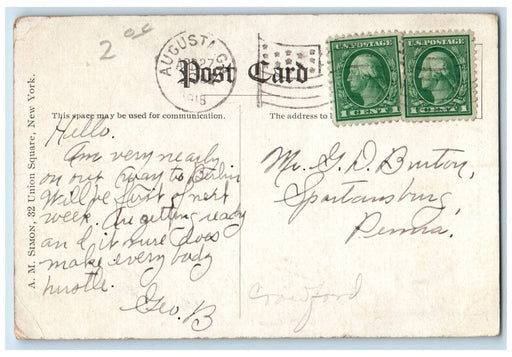 2 00
AUGUSTA, GA.
27
1918
U.S. POSTAGE
1 CENT 1
U.S. POSTAGE
1 CENT 1
Post Card
This space may be used for communication.
The address to b
A. M. SIMON, 32 Union Square, New York.
Hello.
Am very nearly
on our way to Berlin
Will be first of next
week. Are getting ready
and it sure does
make every body
hustle.
Geo. B
Mr. G. D. Burton,
Spartansburg,
Penna.
Crawford